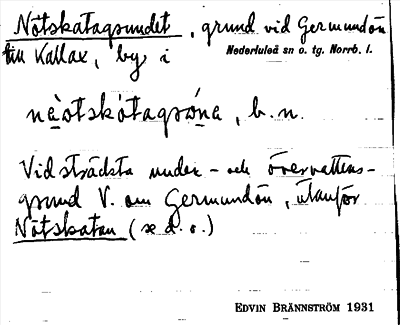 Nötskatagrundet, grund vid Germundön
till Kallax, by i Nederluleå sn o. tg. Norrb. l.
nèotskàtagróna, b. n.
Vidsträckta under- och övervattens-
grund V. om Germundön, utanför
Nötskatan (se d. o.)
EDVIN BRÄNNSTRÖM 1931